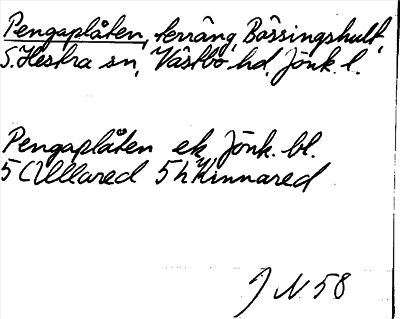 Pengaplåten, terräng, Bössingshult,
S. Hestra sn, Västbo hd, Jönk. l.
Pengaplåten ek, Jönk. bl.
5 C Ullared 5 h Kinnared
J N 58